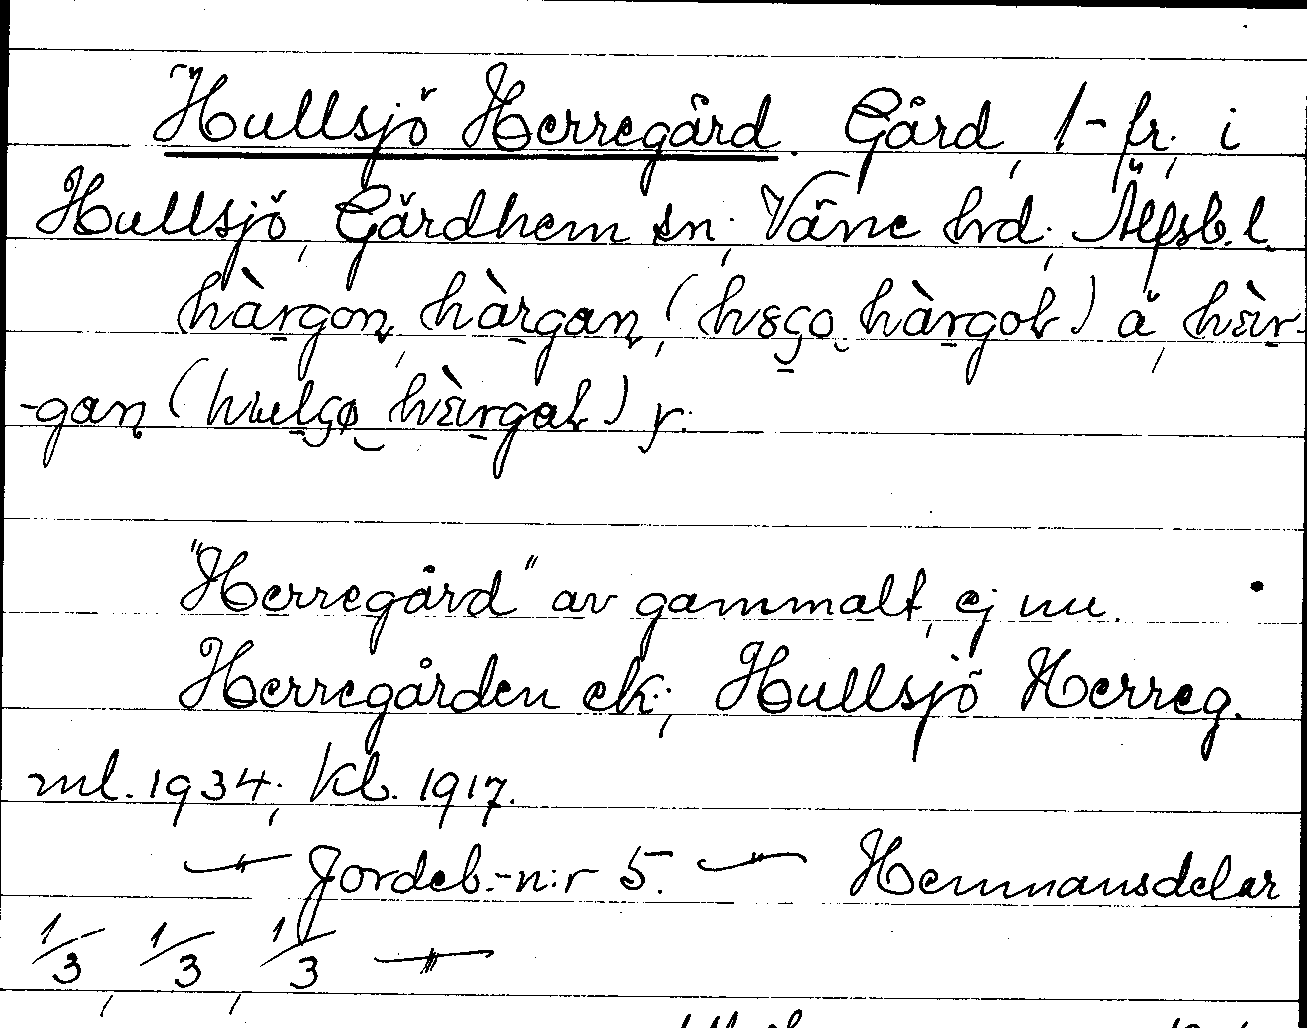 Hullsjö Herregård. Gård, 1-fr. i
Hullsjö, Gärdhem sn, Väne hrd, Älfsb. l.
hàrgon, hàrgan, (hsço hàrgol) ä, hàr-
-gan (hulçø hàrgal) y.
"Herregård" av gammalt, ej nu.
Herregården ek.; Hullsjö Herreg.
ml. 1934; kb. 1917.
Jordeb.-n:r 5. Hemmansdelar
1/3, 1/3, 1/3